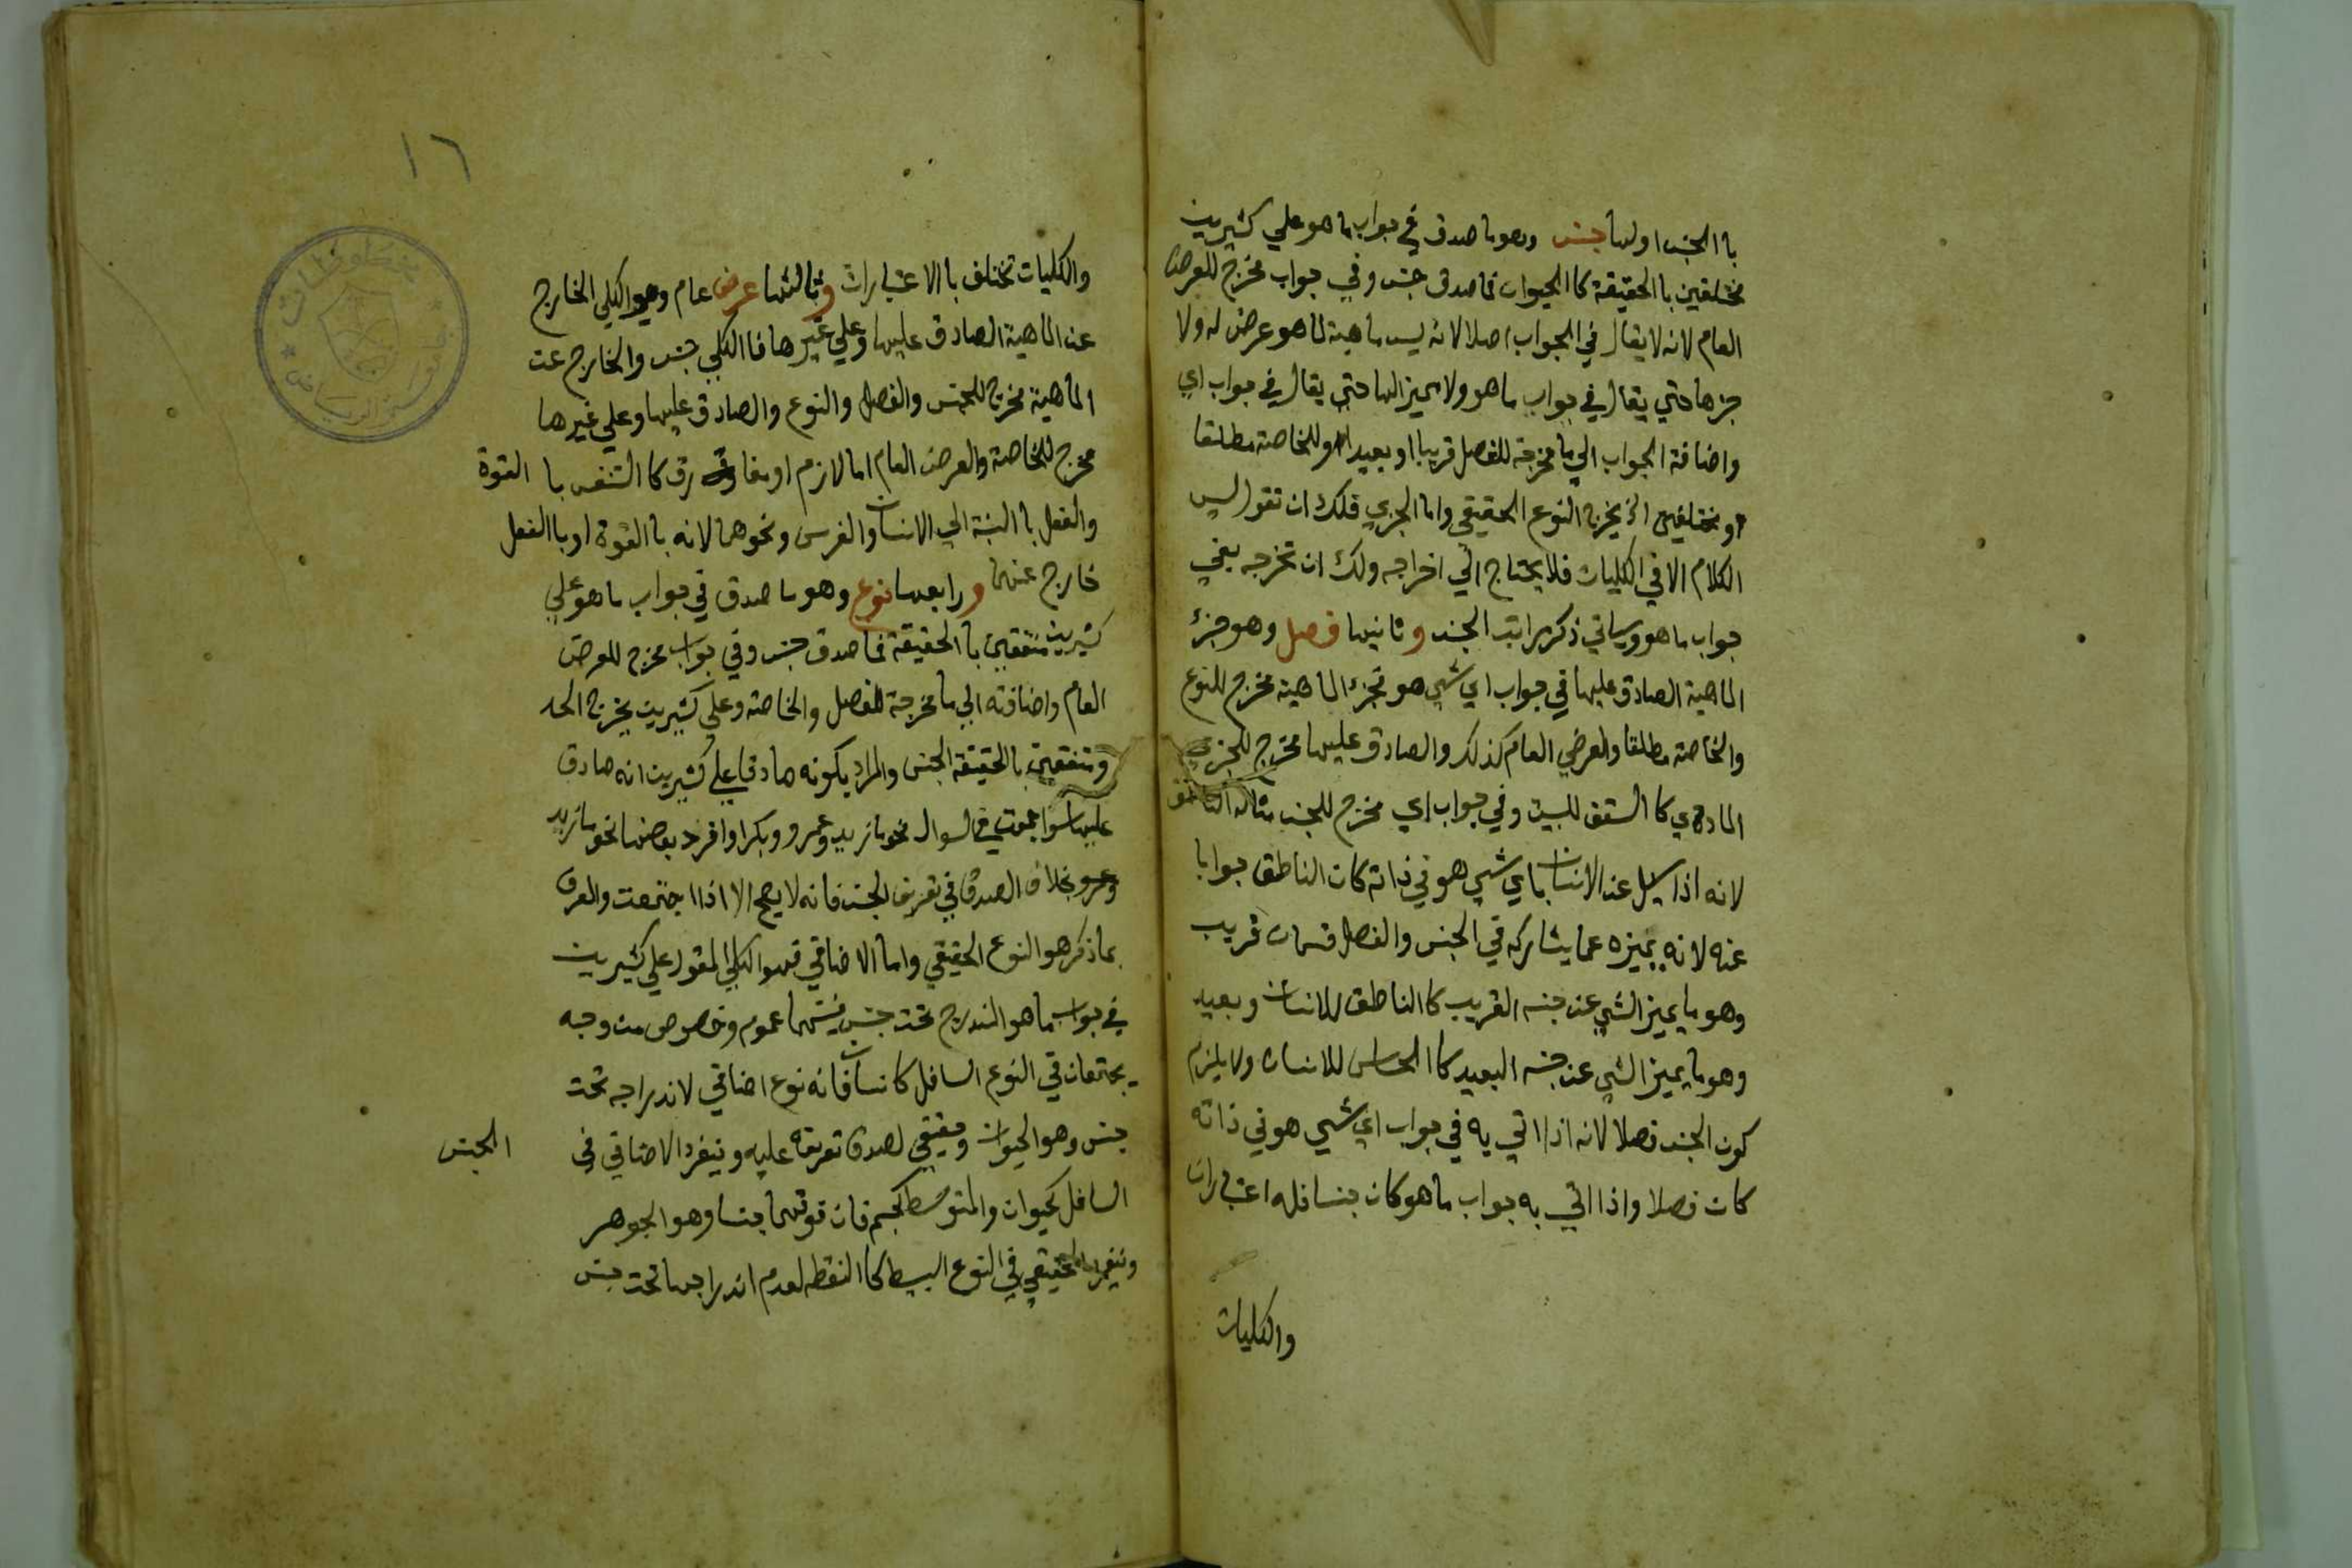 با الجنس اولها جنس وهو ما صدق في جواب ما هو علي كثيرين
مختلفين با الحقيقة كا الحيوان فما صدق جنس وفي جواب مخرج للعرض
العام لانه لا يقال في الجواب اصلا لانه ليس ماهية لما هو عرض له ولا
جزها حتي يقال في جواب ما هو ولا مميز الها حتي يقال في جواب اي
واضافة الجواب الي ما مخرجة للفصل قريبا او بعيدا وللخاصة مطلقا
ومختلفين الخ يخرج النوع الحقيقي واما الجزي فلك ان تقول ليس
الكلام الا في الكليات فلا يحتاج الي اخراجه ولك ان تخرجه بفي
جواب ما هو وسياتي ذكر مراتب الجنس وثانيها فصل وهو جزء
الماهية الصادق عليها في جواب اي شي هو فجزء الماهية مخرج للنوع
والخاصة مطلقا والعرضي العام كذلك والصادق عليها مخرج للجزي
المادي كا السقف للبيت وفي جواب اي مخرج للجنس مثاله الناطق
لانه اذا سيل عن الانسان باي شي هو في ذاته كان الناطق جوابا
عنه لانه يميزه عما يشاركه في الجنس والفصل قسمان قريب
وهو ما يميز الشي عن جنسه القريب كا الناطق للانسان وبعيد
وهو ما يميز الشي عن جنسه البعيد كا الحساس للانسان ولا يلزم
كون الجنس فصلا لانه اذا اتي به في جواب اي شي هو في ذاته
كان فصلا واذا اتي به جواب ما هو كان جنسا فله اعتباران
والكليات
١٦
والكليات تختلف با الاعتبارات وثالثها عرض عام وهو الكلي الخارج
عن الماهية الصادق عليها وعلي غيرها فا الكلي جنس والخارج عن
الماهية مخرج للجنس والفصل والنوع والصادق عليها وعلي غيرها
مخرج للخاصة والعرض العام اما لازم او مفارق كا التنفس با القوة
والفعل با النسبة الي الانسان والفرس ونحوهما لانه با القوة او با الفعل
خارج عنهما ورابعها نوع وهو ما صدق في جواب ما هو علي
كثيرين متفقين با الحقيقة فما صدق جنس وفي جواب مخرج للعرض
العام واضافته الي ما مخرجة للفصل والخاصة وعلي كثيرين يخرج الحد
ومتفقين با الحقيقة الجنس والمراد بكونه صادقا علي كثيرين انه صادق
عليها سوا جمعت في السوال نحو ما زيد وعمرو وبكر او افرد بعضها نحو ما زيد
وعمرو بخلاف الصدق في تعريف الجنس فانه لا يصح الا اذا اجتمعت والعرف
بما ذكر هو النوع الحقيقي واما الاضافي فهو الكلي المقول علي كثيرين
في جواب ما هو المندرج تحت جنس فبينهما عموم وخصوص من وجه
يجتمعان في النوع السافل كانسان فانه نوع اضافي لاندراجه تحت
جنس وهو الحيوان وحقيقي لصدق تعريفه عليه وينفرد الاضافي في الجنس
السافل كحيوان والمتوسط كجسم فان فوقهما جنسا وهو الجوهر
وينفرد الحقيقي في النوع البسيط كا النقطه لعدم اندراجها تحت جنس